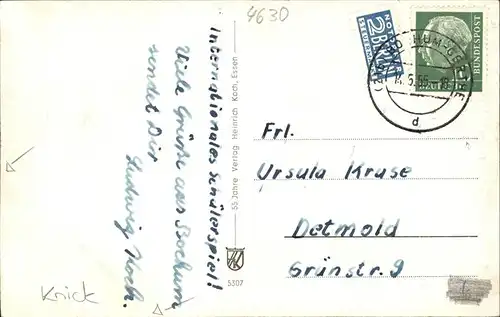 4630
Internationales Schülerspiel!
Viele Grüße aus Bochum
sendet Dir
Ludwig Koch.
Knick
55 Jahre Verlag Heinrich Koch, Essen
5307
NOTOPFER
2 BERLIN
STEUERMARKE
DEUTSCHE BUNDESPOST
d
Frl.
Ursula Kruse
Detmold
Grünstr. 9